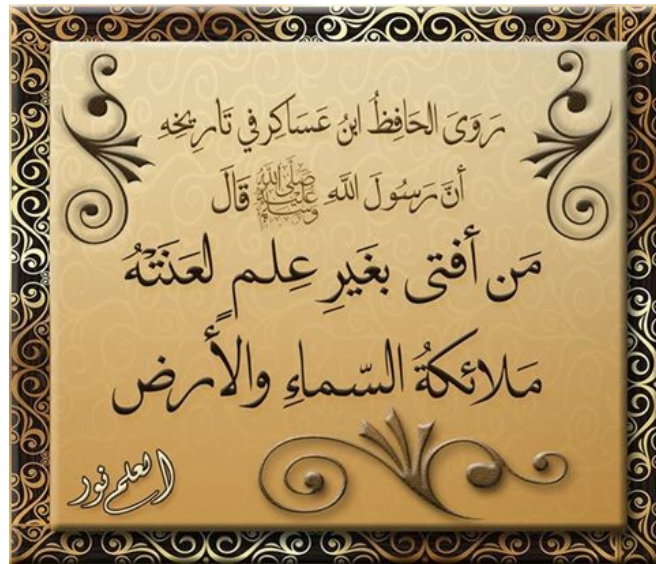 رَوَىَ الحَافِظُ ابنُ عَسَاكِر في تَاريخِهِ
أنَّ رَسُولَ اللَّهِ ﷺ قَالَ
مَن أفتى بغَيرِ عِلمٍ لعَنَتْهُ
مَلائكةُ السّماءِ والأَرض
العلم نور